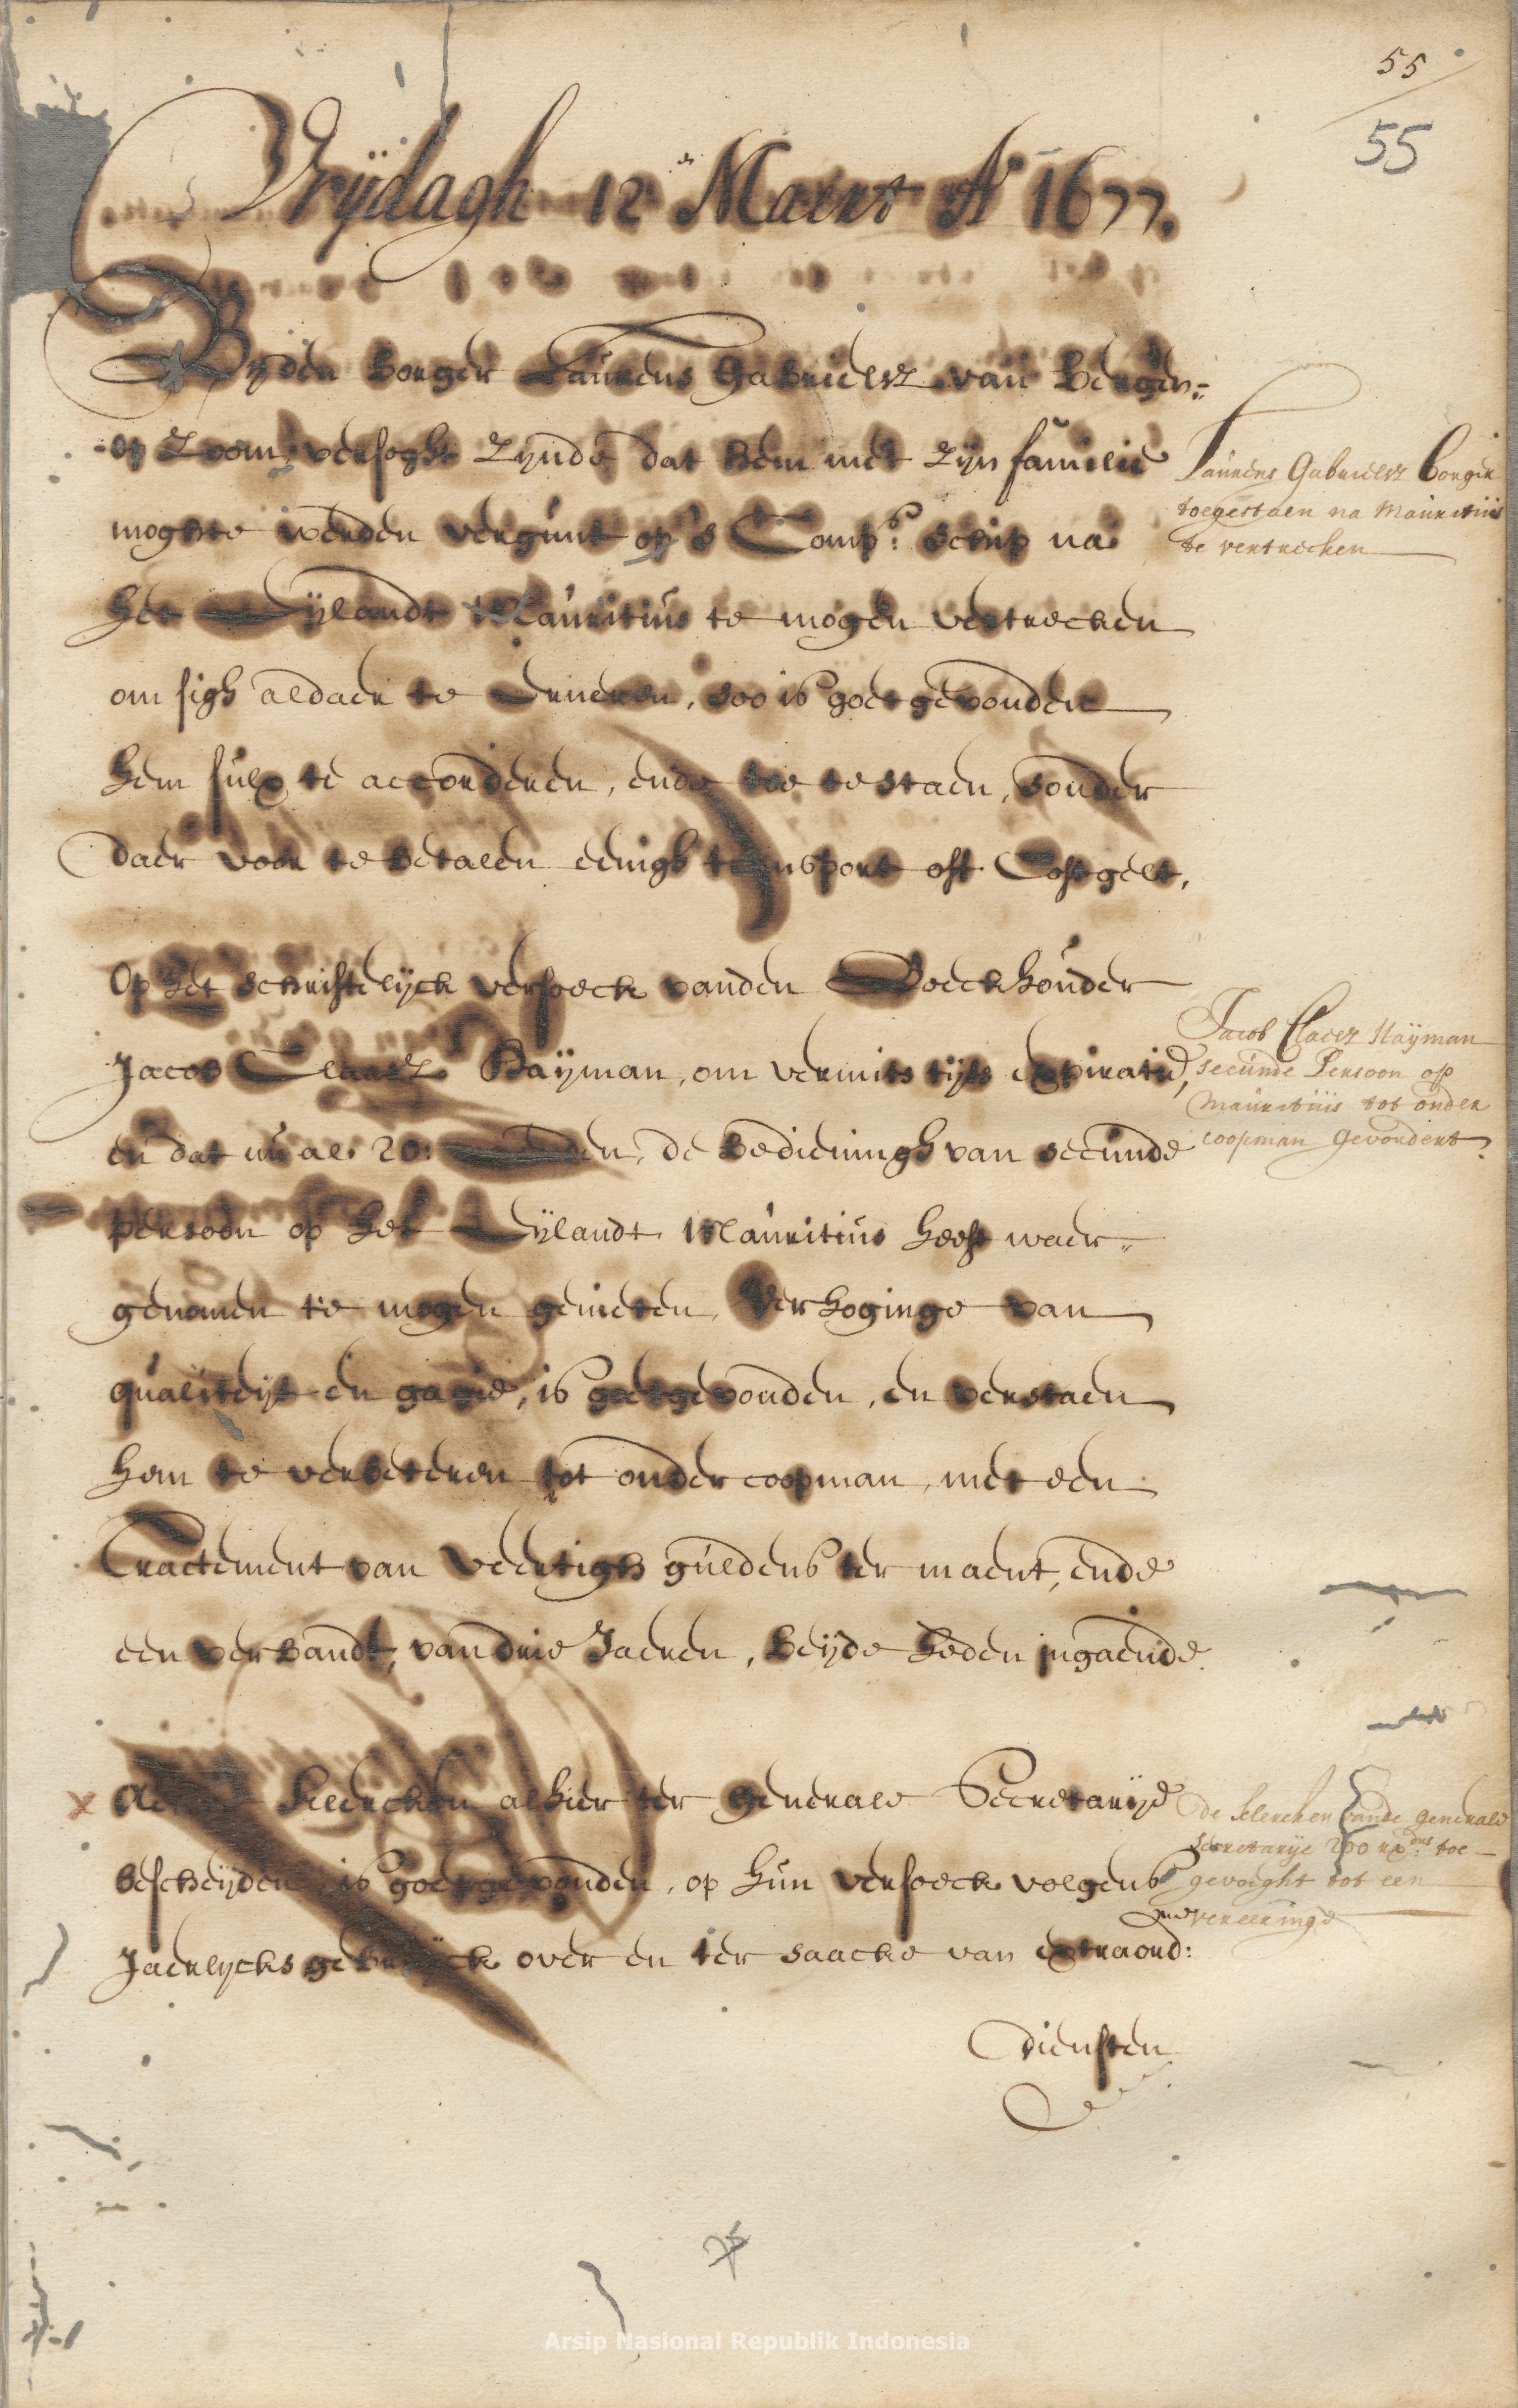 55
55
Vrijdagh 12 Maert Aº 1677.
Bijden borger Laurens Gabrielsz van Bergen=
op Zoom, versoght zijnde dat hem met zijn familie
moghte werden vergunt op 's Comps. schip na
het Eijlandt Mauritius te mogen vertrecken
om sigh aldaer te erneren, soo is goetgevonden
hem sulx te accorderen, ende toe te staen, sonder
daer voor te betalen eenigh transport oft Costgelt,
Laurens Gabrielsz borger
toegestaen na Mauritius
te vertrecken
Op het schriftelijck versoeck vanden Boeckhouder
Jacob Claasz Haijman, om vermits tijts expiratie,
en dat nu al 20: maenden, de bedieningh van secunde
persoon op het Eijlandt Mauritius heeft waer„
genomen te mogen genieten, verhoginge van
qualiteijt en gagie, is goetgevonden, en verstaen
hem te verbeteren tot ondercoopman, met een
Tractement van veertigh guldens ter maent, ende
een verbandt, van drie Jaeren, beijde heden ingaende.
Jacob Claesz Haijman
secunde Persoon op
Mauritius tot onder
coopman gevordert.
x
klercken alhier ter generale Secretarije
bescheijden, is goetgevonden, op hun versoeck volgens
Jaerlijcks gebruijck over en ter saacke van extraord:
diensten
de klercken vande generale
secretarije 200 rxds. toe
gevoeght tot een
vereeringe
Arsip Nasional Republik Indonesia